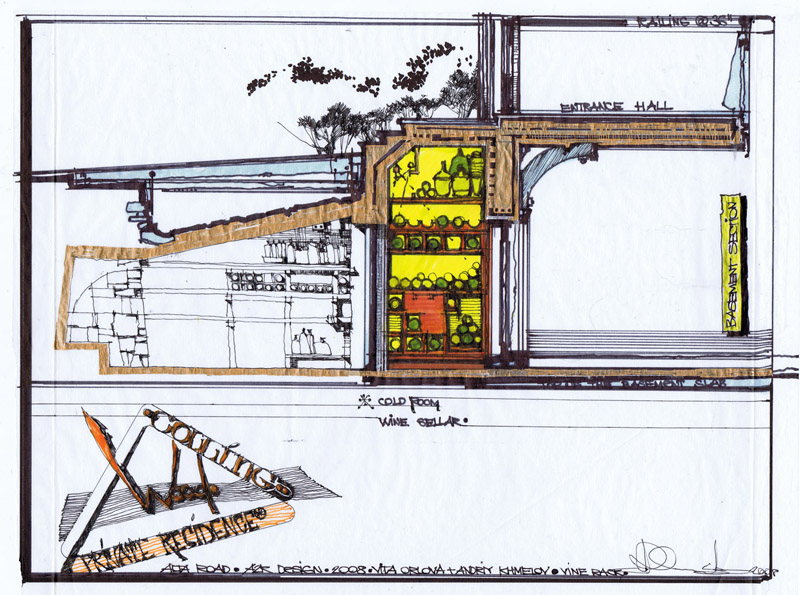 RAILING @ 36"
ENTRANCE HALL
BASEMENT SECTION
BASEMENT SLAB
COLD ROOM
WINE SELLAR.
COLLINGS
WOOD
PRIVATE RECIDENCE
ALTA ROAD • A2K DESIGN • 2008 • VITA ORLOVA + ANDRIY KHMELOV • VINE RACK •
2008